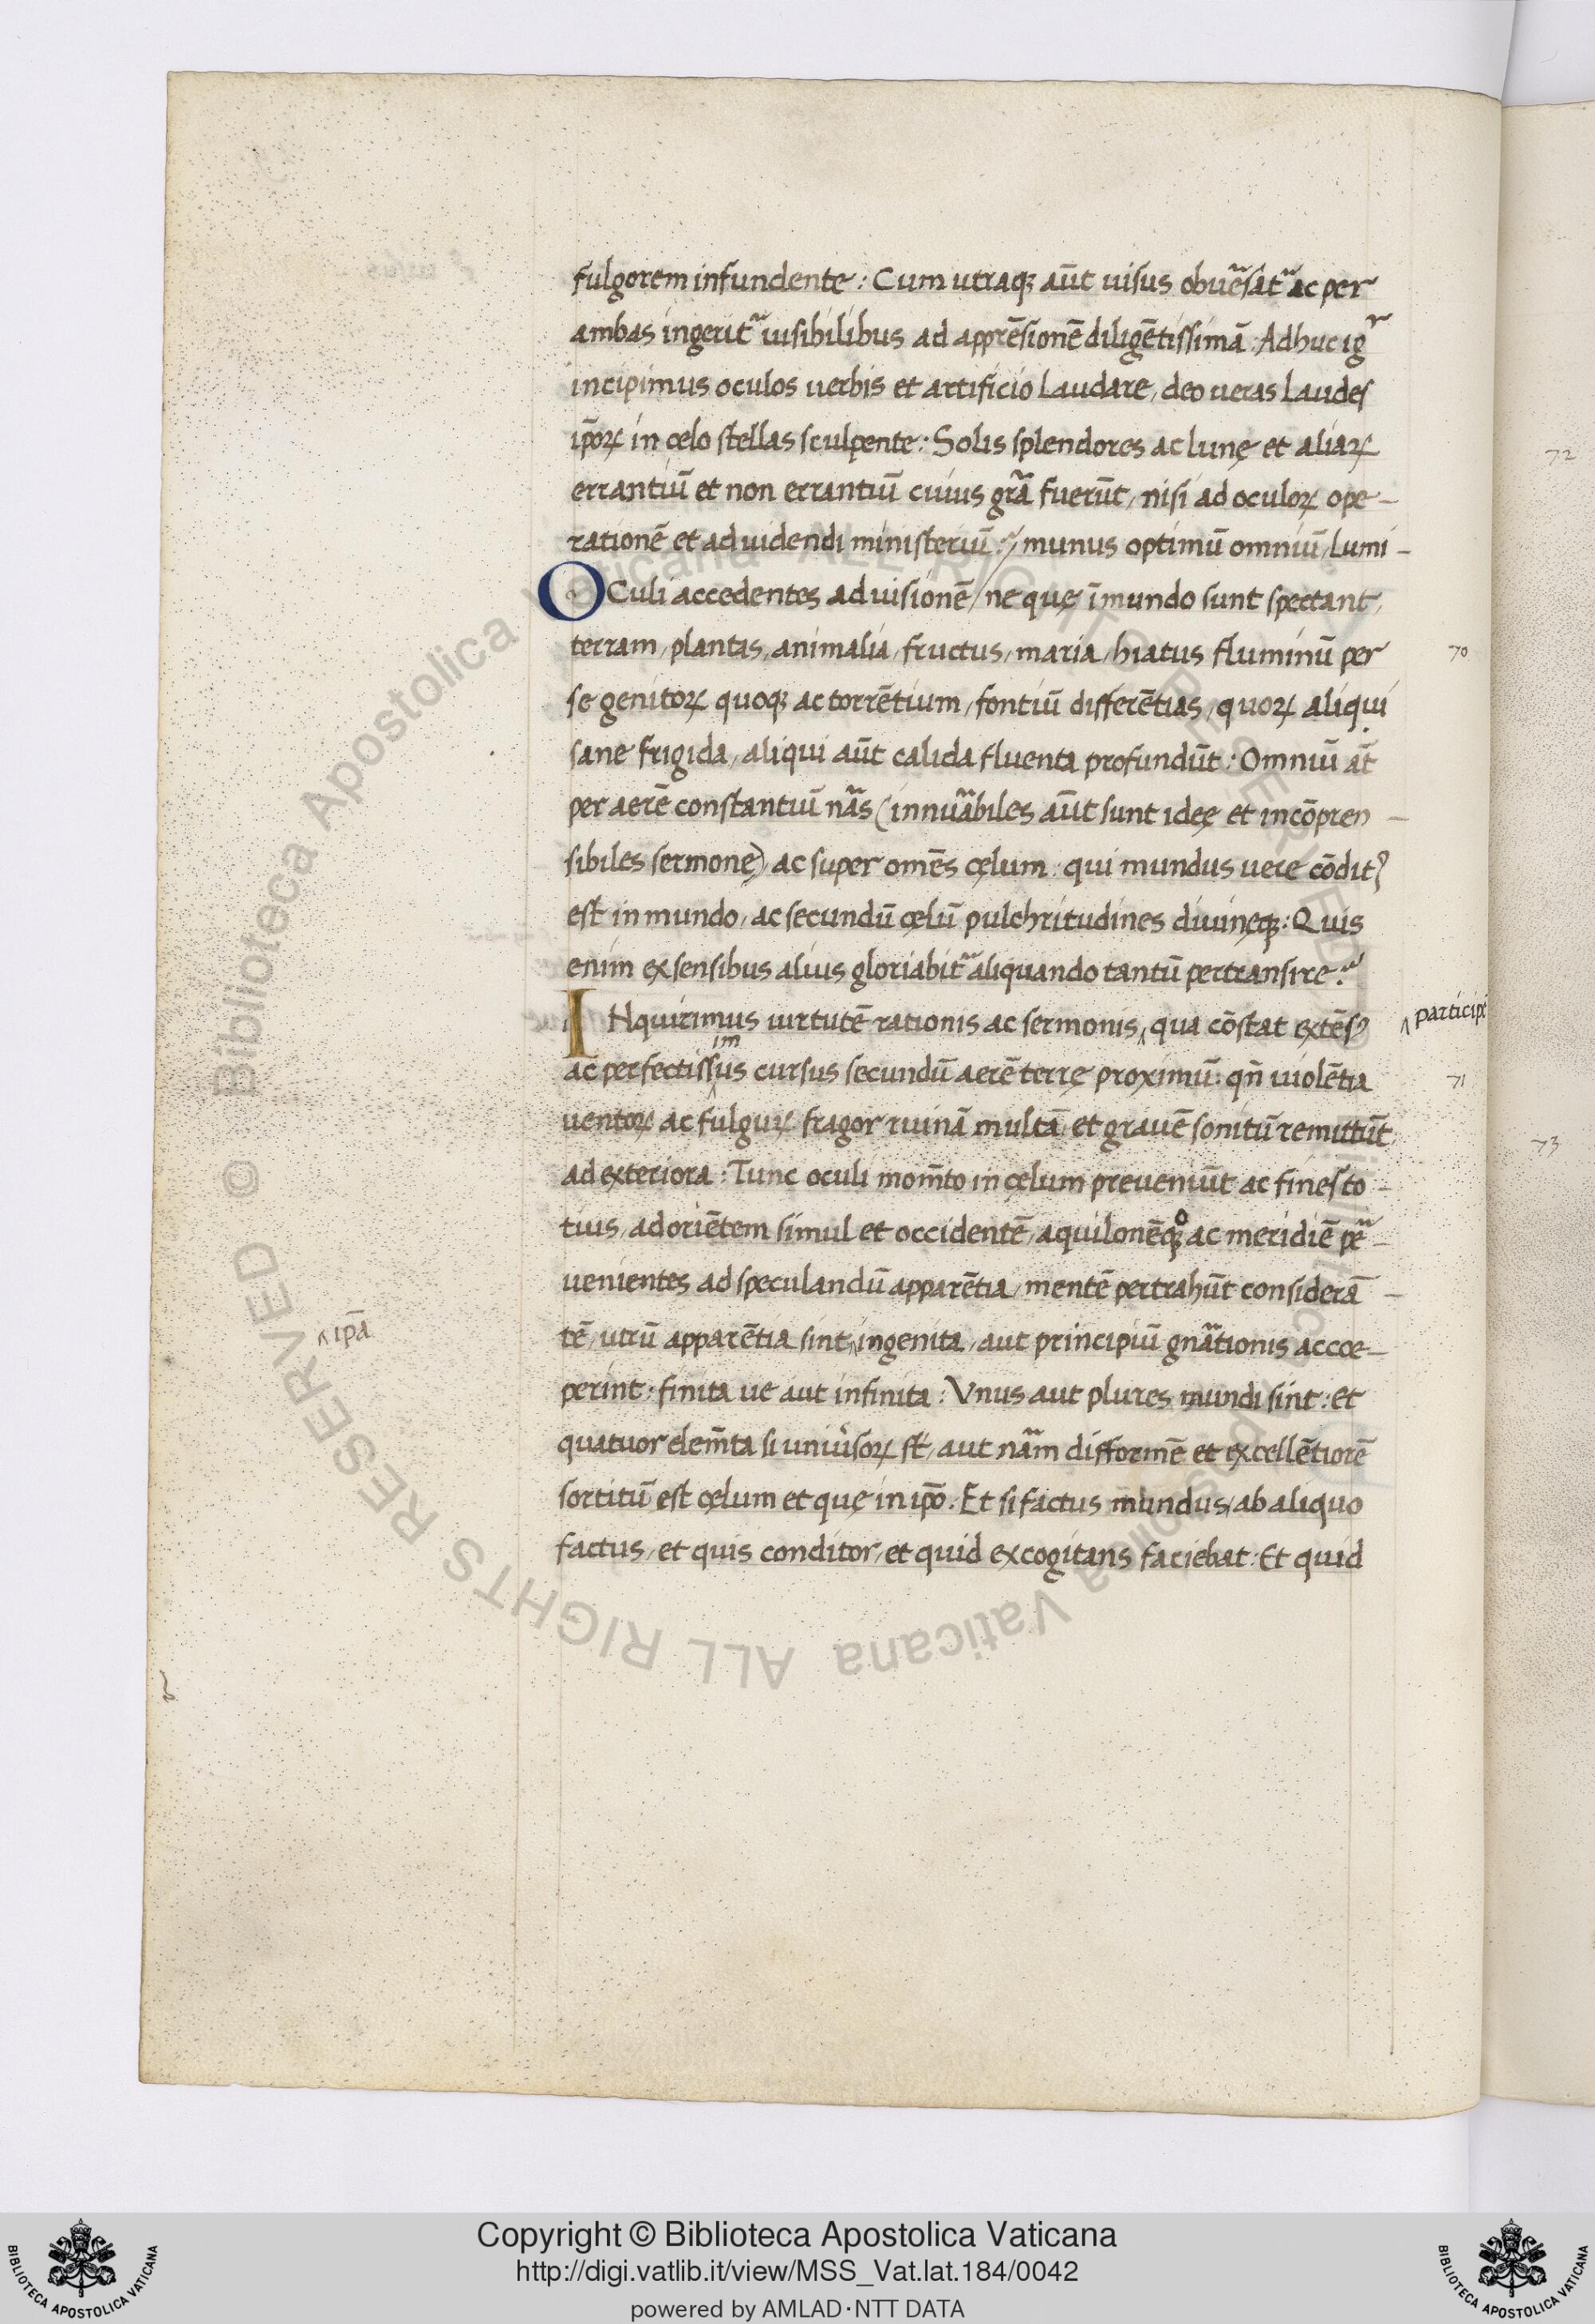 fulgorem infundente: Cum utraqꝫ aūt uisus obuersat᷑ ac per
ambas ingerit᷑ uisibilibus ad apprēsionē diligētissimā: Adhuc igr
incipimus oculos uerbis et artificio laudare, deo ueras laudes
ip̄oꝝ in celo stellas sculpente: Solis splendores ac lunę et aliaꝝ
errantiū et non errantiū cuius grā fuerūt, nisi ad oculoꝝ ope-
rationē et ad uidendi ministeriū: munus optimū omniū, lumi-
Oculi accedentes ad uisionē, ne quę ī mundo sunt spectant,
terram, plantas, animalia, fructus, maria, hiatus fluminū per
se genitoꝝ quoqꝫ ac torrētium, fontiū differētias, quoꝝ aliqui
sane frigida, aliqui aūt calida fluenta profundūt: Omniū āt
per aerē constantiū nās (innuābiles aūt sunt ideę et incōpren-
sibiles sermone) ac super omēs cęlum: qui mundus uere cōditꝰ
est in mundo, ac secundū cęlū pulchritudines diuinęqꝫ: Quis
enim ex sensibus alius gloriabit᷑ aliquando tantū pertransire?
INquirimus uirtutē rationis ac sermonis, qua cōstat extēsꝰ
participi
im
ac perfectissus cursus secundū aerē terrę proximū: qn̄ uiolētia
uentoꝝ ac fulguꝝ fragor ruinā multā et grauē sonitū remittūt
ad exteriora: Tunc oculi mom̄to in cęlum preueniūt ac fines to-
tius, ad oriētem simul et occidentē, aquilonēqꝫ ac meridiē per-
uenientes ad speculandū apparētia, mentē pertrahūt considerā-
ipā
tē, utrū apparētia sint ingenita, aut principiū gnātionis accoe-
perint: finita ue aut infinita: Vnus aut plures mundi sint: Et
quatuor elem̄ta si uniusoꝝ st̄, aut nām difformē et excellētiorē
sortitū est cęlum et quę in ip̄o: Et si factus mundus, ab aliquo
factus, et quis conditor, et quid excogitans faciebat: Et quid
72
70
71
73
Copyright © Biblioteca Apostolica Vaticana
http://digi.vatlib.it/view/MSS_Vat.lat.184/0042
powered by AMLAD·NTT DATA
BIBLIOTECA APOSTOLICA VATICANA
BIBLIOTECA APOSTOLICA VATICANA
Biblioteca Apostolica Vaticana ALL RIGHTS RESERVED ©